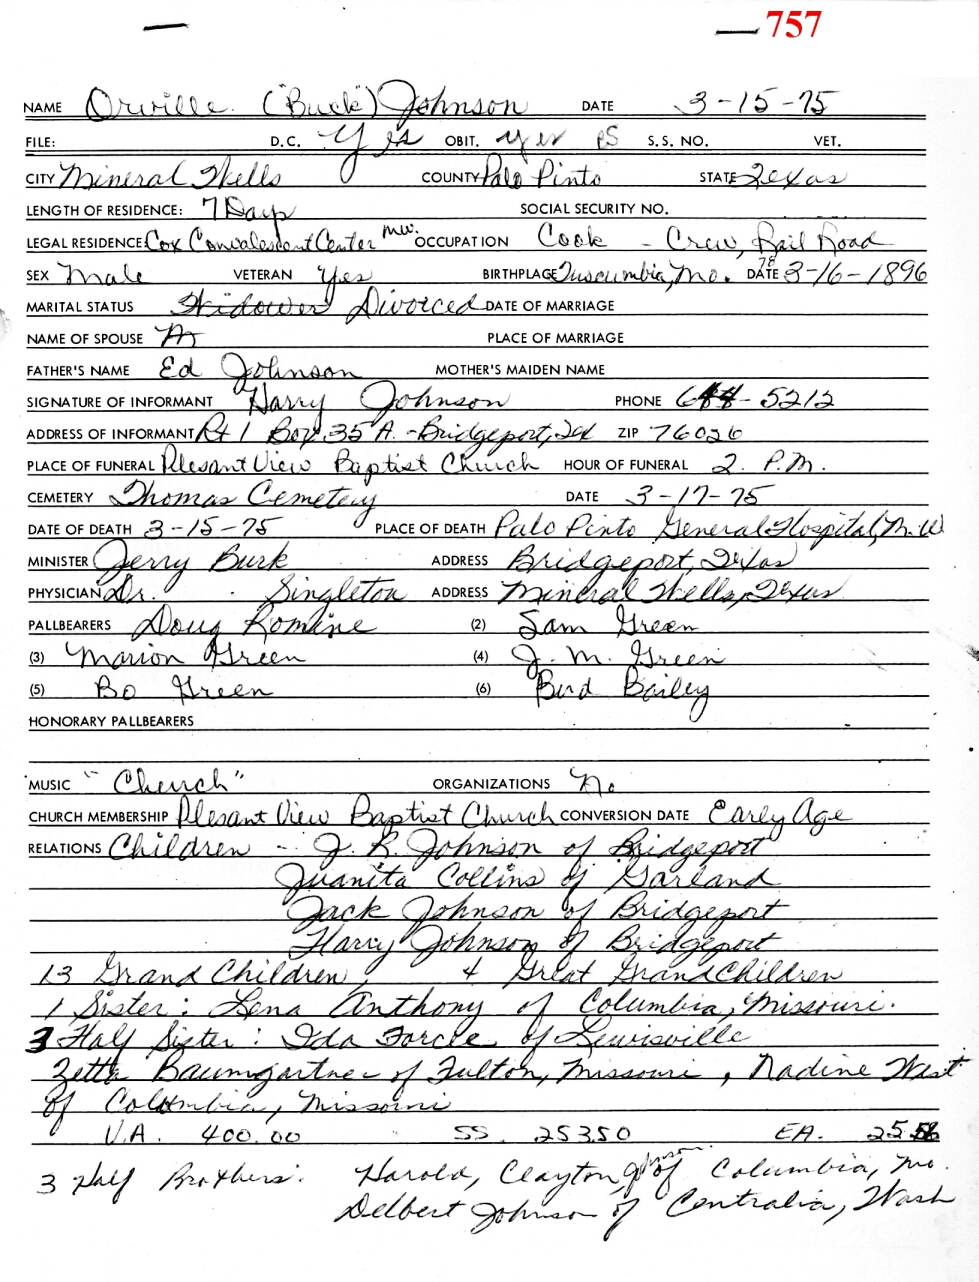 757
NAME Orville ("Buck") Johnson DATE 3-15-75
FILE: D.C. Yes OBIT. yes PS S.S. NO. VET.
CITY Mineral Wells COUNTY Palo Pinto STATE Texas
LENGTH OF RESIDENCE: 7 Days SOCIAL SECURITY NO.
LEGAL RESIDENCE: Cox Convalescent Center MW. OCCUPATION Cook - Crew, Rail Road
SEX Male VETERAN Yes BIRTHPLACE Tuscumbia, Mo. 78 DATE 3-16-1896
MARITAL STATUS Widower Divorced DATE OF MARRIAGE
NAME OF SPOUSE PLACE OF MARRIAGE
FATHER'S NAME Ed Johnson MOTHER'S MAIDEN NAME
SIGNATURE OF INFORMANT Harry Johnson PHONE 644-5212
ADDRESS OF INFORMANT Rt 1 Box 35 A. - Bridgeport, Tex ZIP 76026
PLACE OF FUNERAL Plesant View Baptist Church HOUR OF FUNERAL 2. P.M.
CEMETERY Thomas Cemetery DATE 3-17-75
DATE OF DEATH 3-15-75 PLACE OF DEATH Palo Pinto General Hospital, M.W
MINISTER Jerry Burk ADDRESS Bridgeport, Texas
PHYSICIAN Dr. Singleton ADDRESS Mineral Wells, Texas
PALLBEARERS Doug Romine (2) Sam Green
(3) Marion Green (4) J. M. Green
(5) Bo Green (6) Burd Bailey
HONORARY PALLBEARERS
MUSIC "Church" ORGANIZATIONS No
CHURCH MEMBERSHIP Plesant View Baptist Church CONVERSION DATE Early Age
RELATIONS Children - J. R. Johnson of Bridgeport
Juanita Collins of Garland
Jack Johnson of Bridgeport
Harry Johnson of Bridgeport
13 Grand Children, 4 Great GrandChildren
1 Sister: Lena Anthony of Columbia, Missouri.
3 Half Sister: Ida Forcle of Lewisville
Zetta Baumgartner of Fulton, Missouri, Nadine West
of Columbia, Missouri
V.A. 400.00 SS. 253.50 EA. 25
3 Half Brothers: Harold, Clayton Johnson of Columbia, Mo.
Delbert Johnson of Centralia, Wash